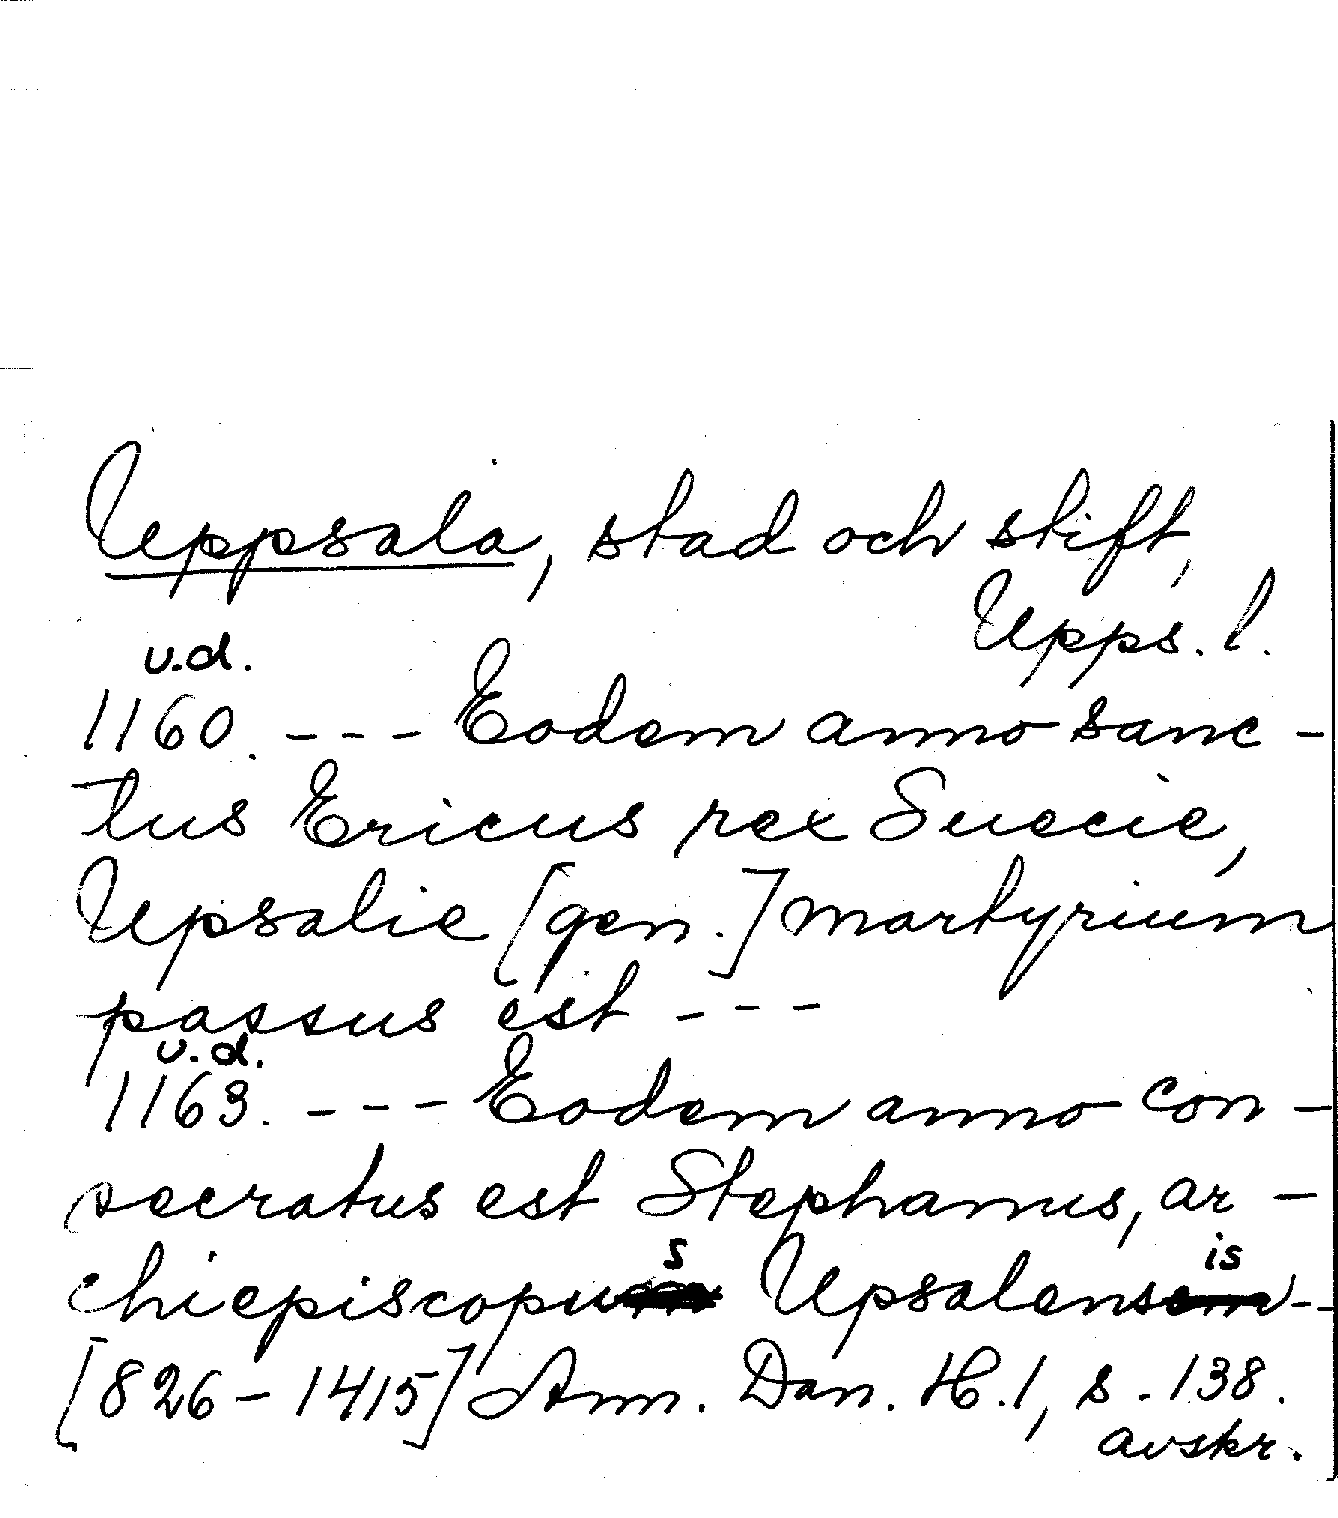 Uppsala, stad och stift,
Upps. l.
u.d.
1160. --- Eodem anno sanc-
tus Ericus rex Suecie,
Upsalie [gen.] martyrium
passus est ---
u.d.
1163. --- Eodem anno con-
secratus est Stephanus, ar-
chiepiscopus Upsalensis --
[826-1415] Ann. Dan. H.1, s. 138.
avskr.